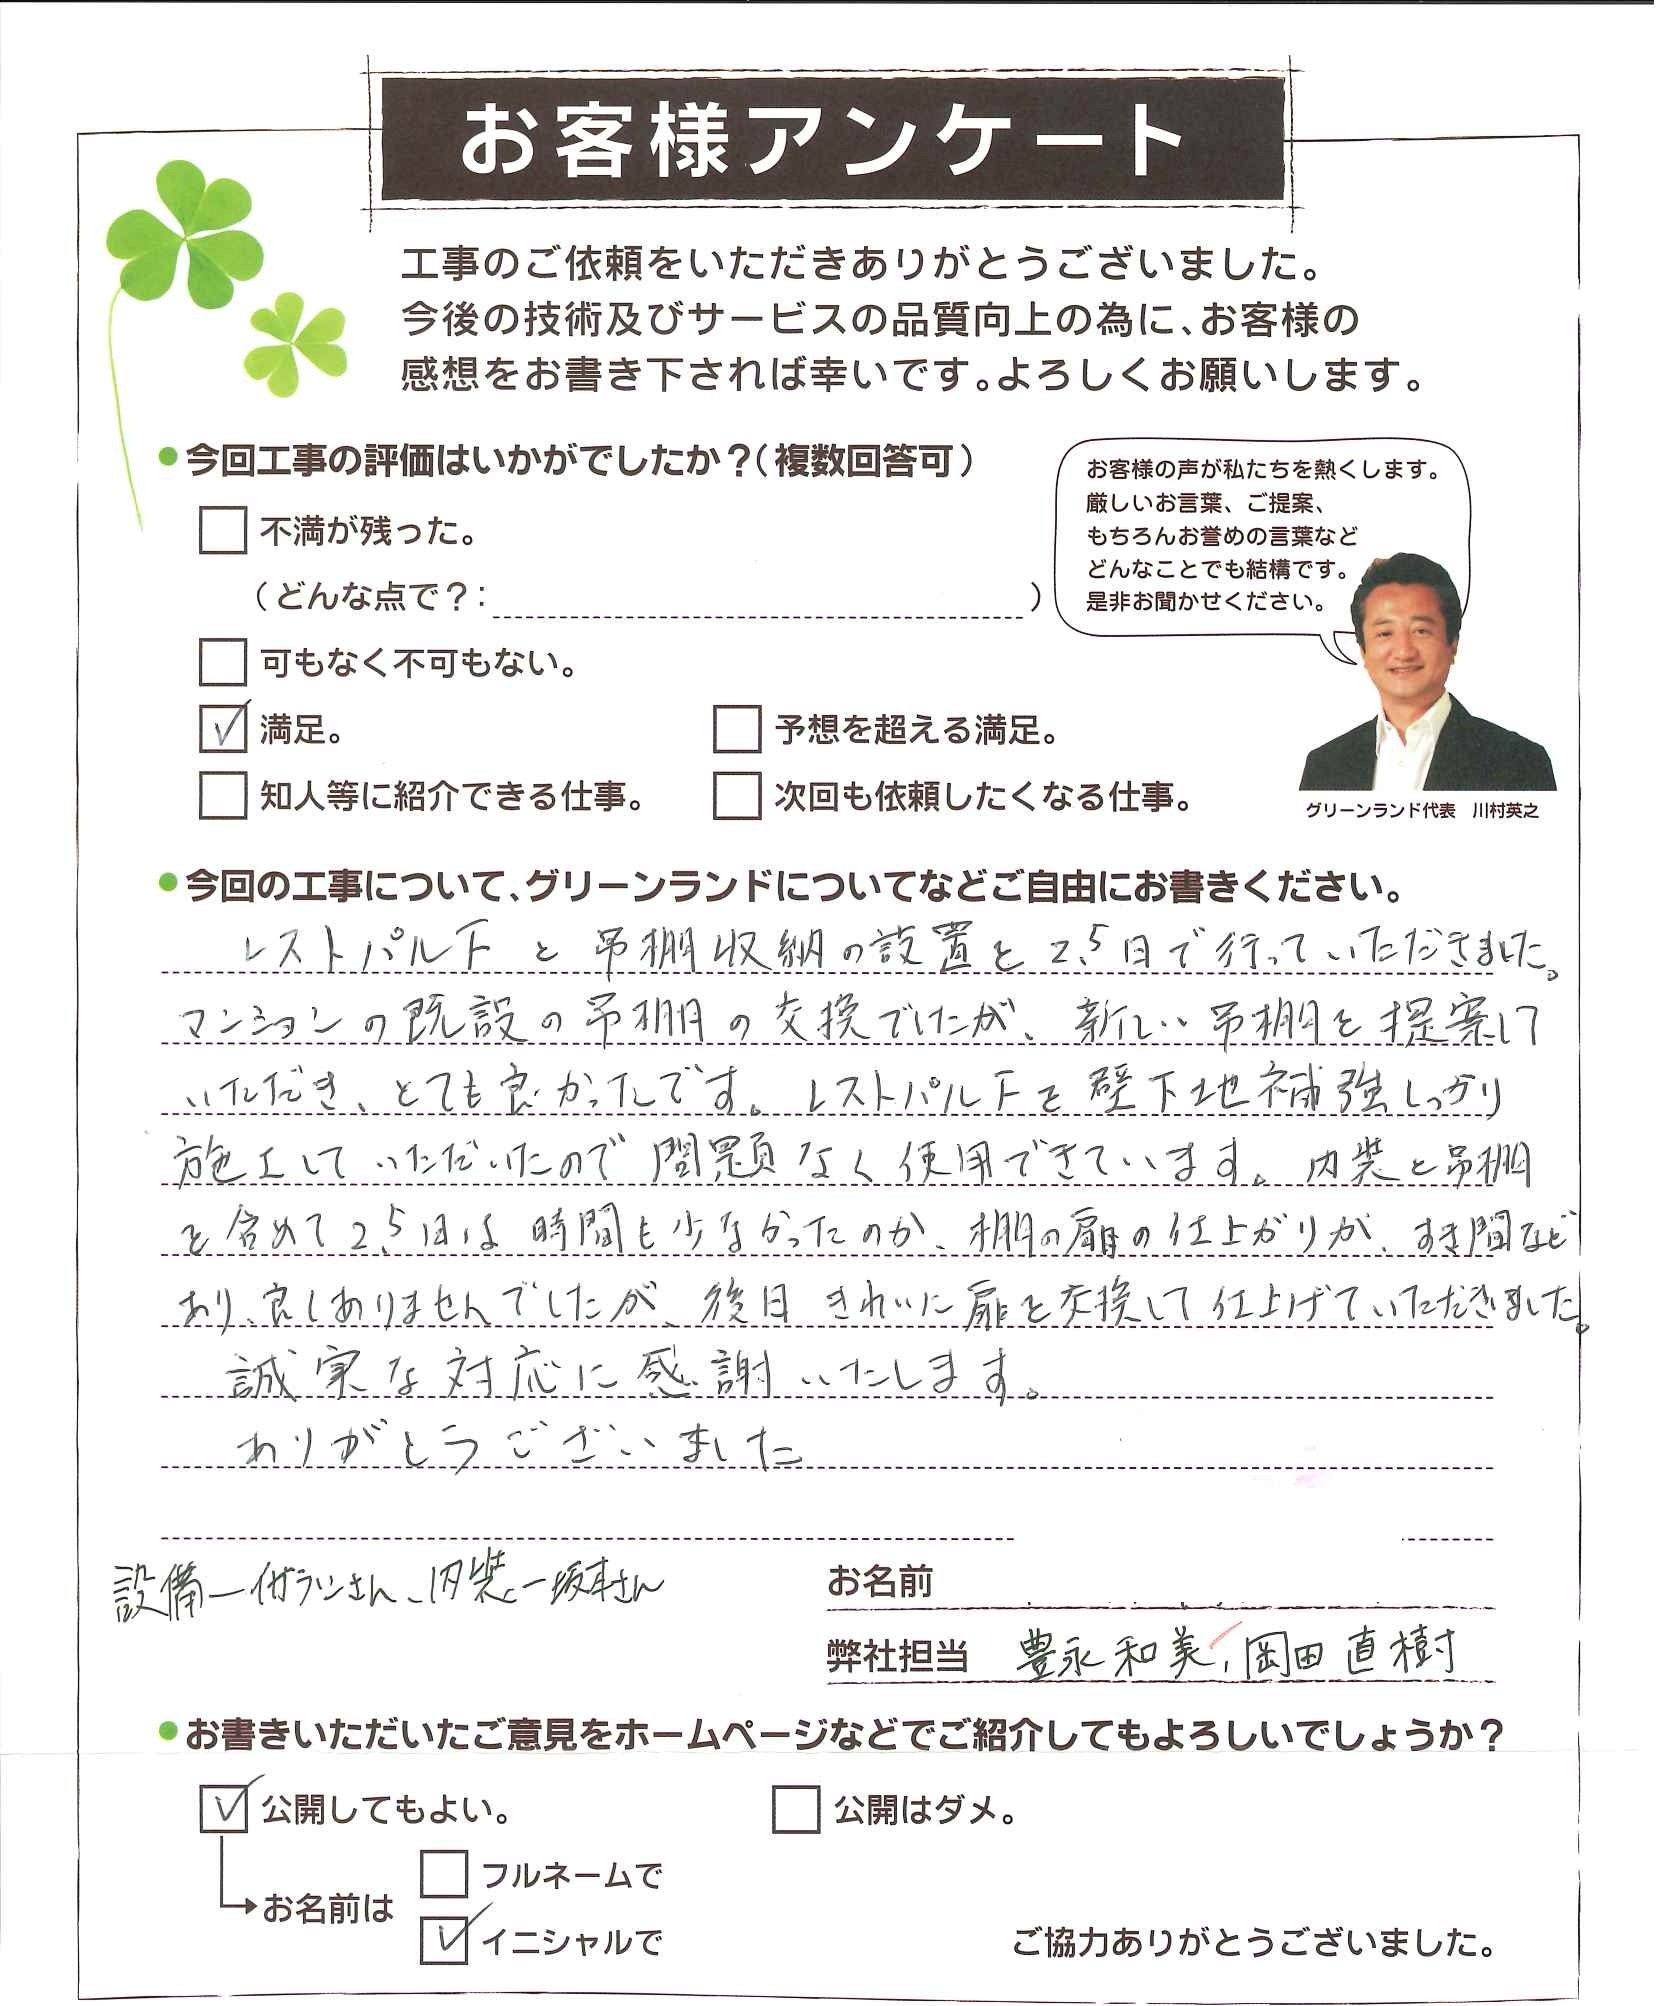 お客様アンケート
工事のご依頼をいただきありがとうございました。
今後の技術及びサービスの品質向上の為に、お客様の
感想をお書き下されば幸いです。よろしくお願いします。
●今回工事の評価はいかがでしたか？（複数回答可）
不満が残った。
（どんな点で？：　）
可もなく不可もない。
✓満足。
予想を超える満足。
知人等に紹介できる仕事。
次回も依頼したくなる仕事。
お客様の声が私たちを熱くします。
厳しいお言葉、ご提案、
もちろんお誉めの言葉など
どんなことでも結構です。
是非お聞かせください。
グリーンランド代表　川村英之
●今回の工事について、グリーンランドについてなどご自由にお書きください。
レストパルFと吊棚収納の設置を2.5日で行っていただきました。
マンションの既設の吊棚の交換でしたが、新しい吊棚を提案して
いただき、とても良かったです。レストパルFを壁下地補強しっかり
施工していただいたので問題なく使用できています。内装と吊棚
を含めて2.5日は時間も少なかったのか、棚の扉の仕上がりが、すき間など
あり、良しありませんでしたが、後日きれいに扉を交換して仕上げていただきました。
誠実な対応に感謝いたします。
ありがとうございました
設備ー さん、内装ー坂本さん
お名前
弊社担当　豊永和美、岡田直樹
●お書きいただいたご意見をホームページなどでご紹介してもよろしいでしょうか？
✓公開してもよい。
公開はダメ。
お名前は
フルネームで
✓イニシャルで
ご協力ありがとうございました。